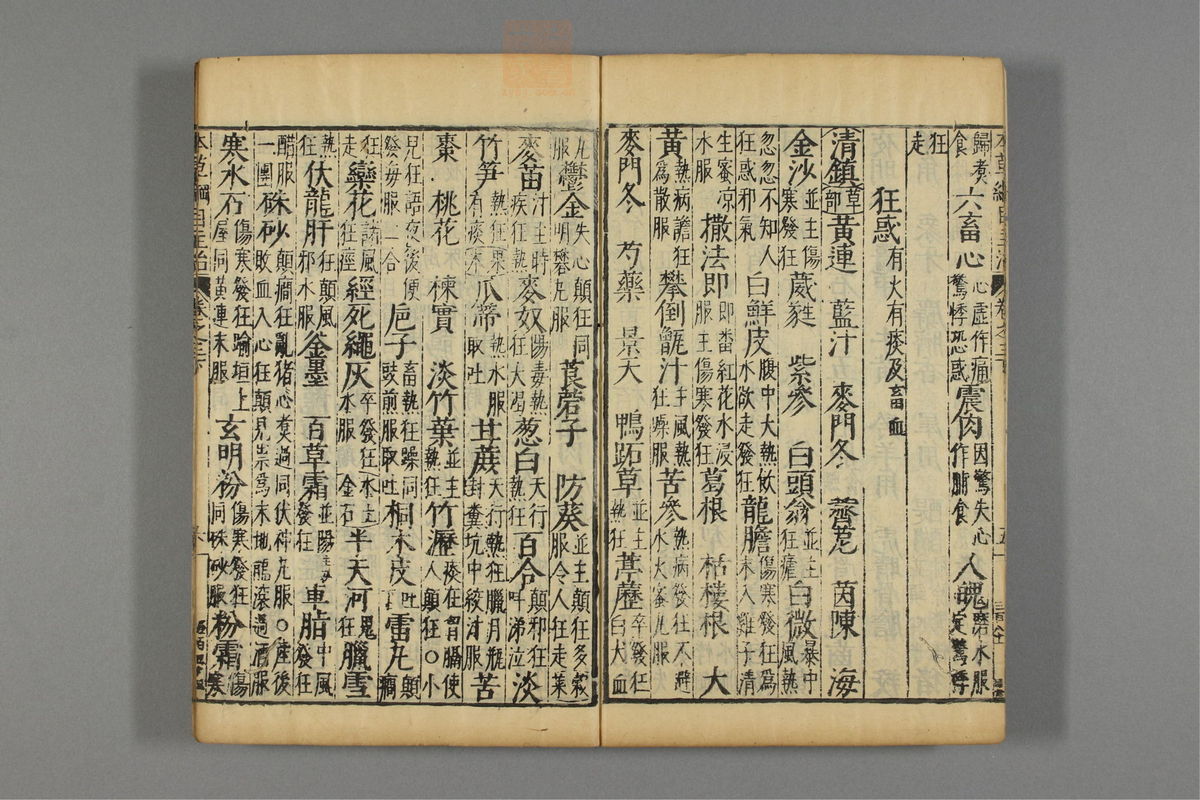 歸煑食六畜心心虛作痛驚悸恐惑震肉因驚失心作脯食人魄磨水服定驚悸
狂走
狂惑有火有痰及畜血
清鎮草部黃連 藍汁 麥門冬 薺苨 茵陳 海
金沙並主傷寒發狂葳蕤 紫參 白頭翁並主狂瘧白微暴中風熱
忽忽不知人狂惑邪氣白鮮皮腹中大熱飲水欲走發狂龍膽傷寒發狂爲末入雞子清
生蜜凉水服撒法即即番紅花水浸服主傷寒發狂葛根 栝樓根 大
黃熱病譫狂爲散服攀倒甑汁主風熱狂躁服苦參熱病發狂不避水火蜜丸服
麥門冬 芍藥 景天 鴨跖草並主熱狂葶藶卒發狂白犬血
丸服鬱金失心顛狂同明礬丸服莨菪子 防葵並主顛狂多穀服令人狂走菜
麥苗汁主時疾狂熱麥奴陽毒熱狂大渴葱白天行熱狂百合顛邪狂叫涕泣淡
竹笋熱狂有痰苽蒂熱水服取吐甘蔗天行熱狂臘月瓶封糞坑中絞汁服苦
棗 桃花 楝實 淡竹葉並主熱狂竹瀝痰在胷膈使人顛狂○小
兒狂語夜後便發毋服一合巵子畜熱狂躁同豉煎服取吐桐木皮吐雷丸顛癎
狂走欒花諸風狂痓經死繩灰卒發狂水服金石半天河鬼狂臘雪
熱狂伏龍肝狂顛風邪水服釜墨 百草霜並陽毒發狂車脂中風發狂
醋服一團硃砂顛癎狂亂猪心煑過同伏神丸服○產後敗血入心狂顛見祟爲末地龍滚過酒服
寒水石傷寒發狂踰垣上屋同黃連末服玄明粉傷寒發狂同硃砂服粉霜傷寒